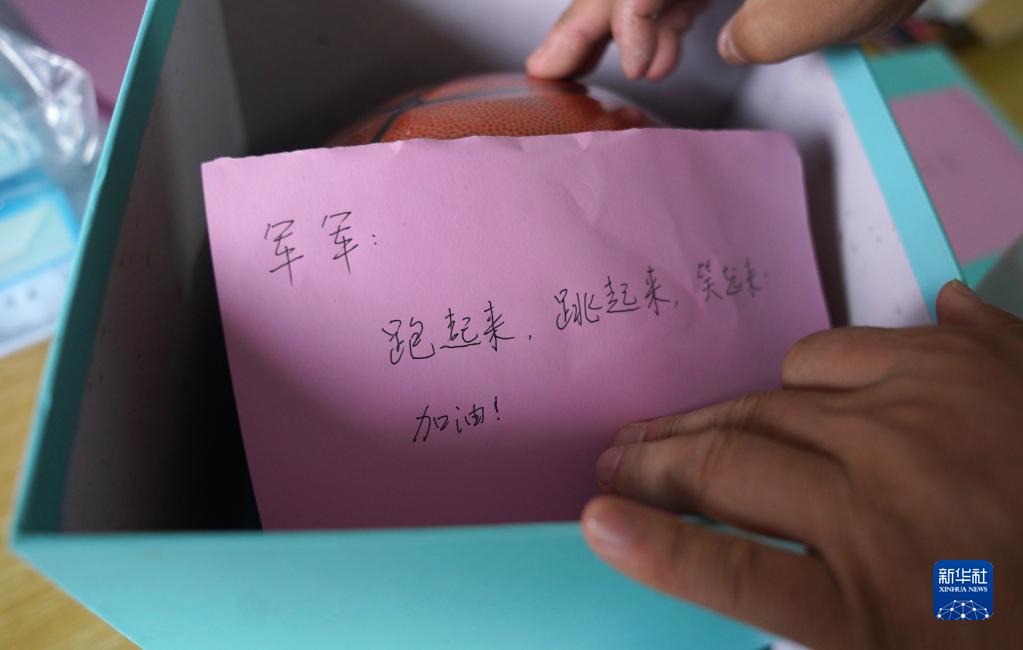 军军：
跑起来，跳起来，笑起来：
加油！
新华社
XINHUA NEWS